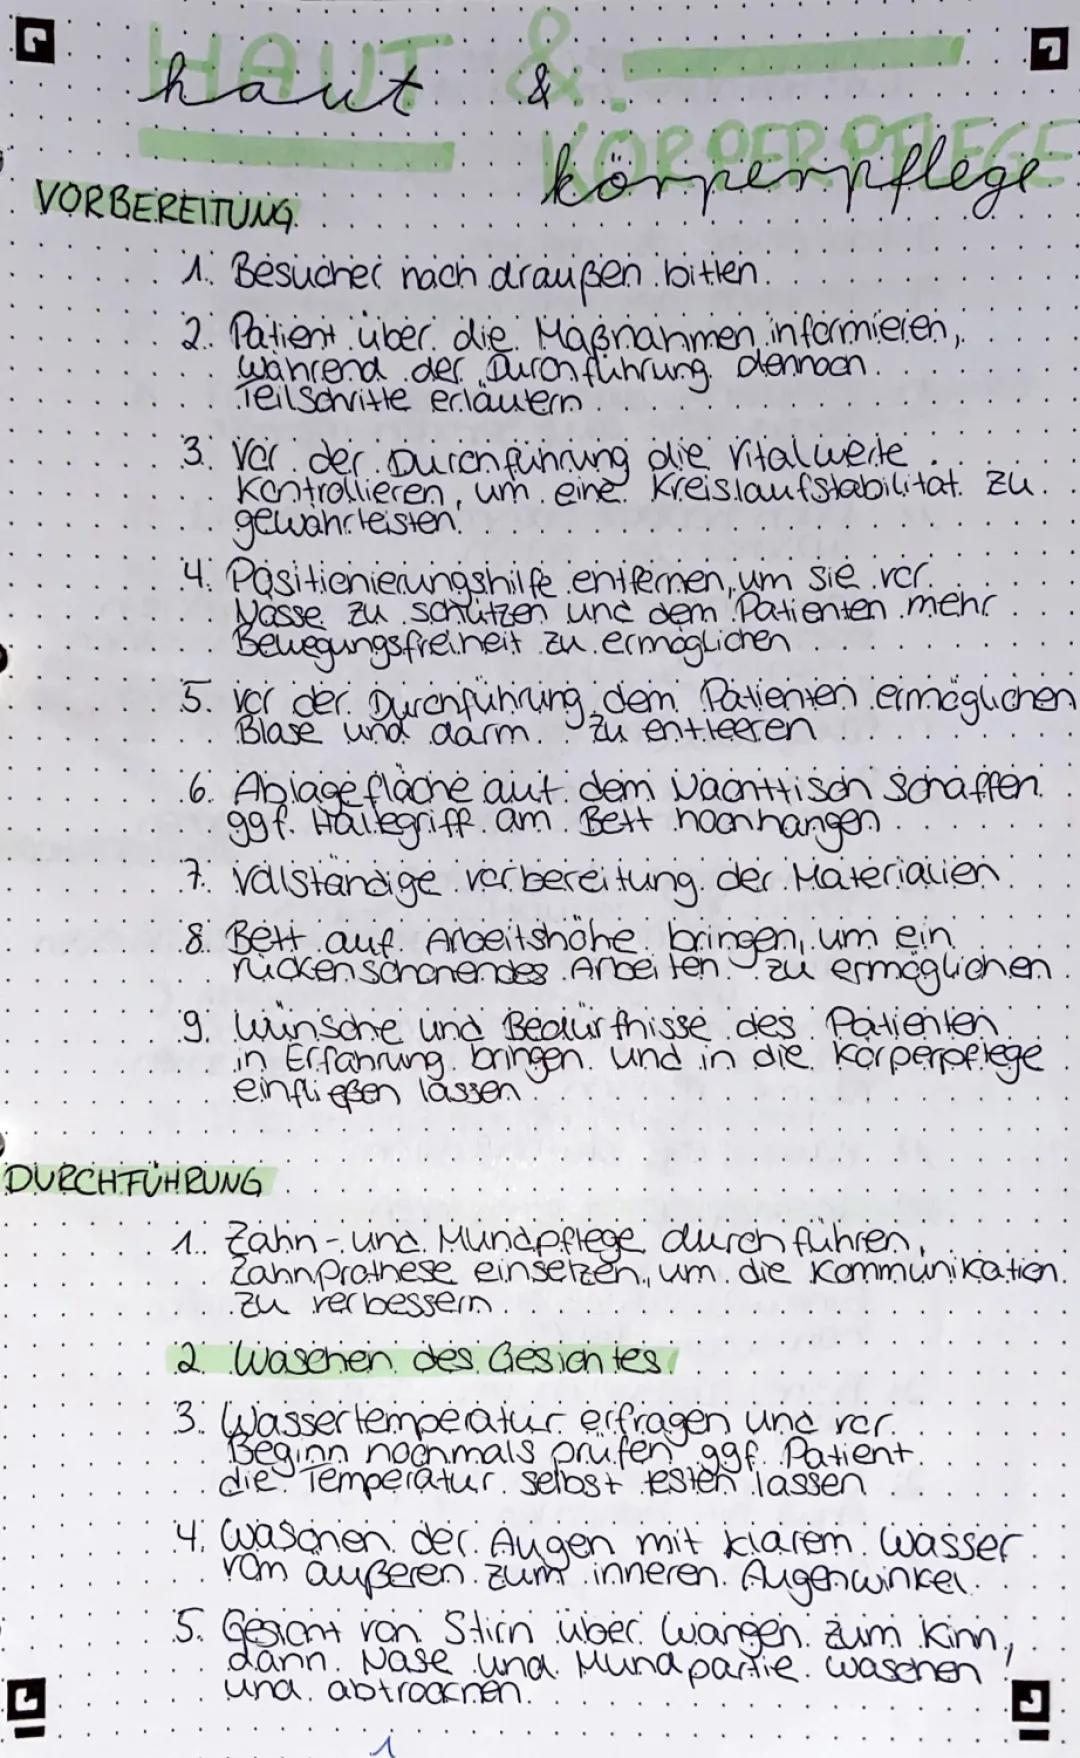 HAUT &
KÖRPERPFLEGE
haut &
körperpflege
VORBEREITUNG
1. Besucher nach draußen bitten.
2. Patient über die Maßnahmen informieren,
während der Durchführung dennoch
Teilschritte erläutern
3. Vor der Durchführung die Vitalwerte
Kontrollieren, um eine Kreislaufstabilität zu
gewährleisten.
4. Positionierungshilfe entfernen, um sie vor
Nässe zu schützen und dem Patienten mehr
Bewegungsfreiheit zu ermöglichen
5. vor der Durchführung dem Patienten ermöglichen
Blase und darm zu entleeren
6. Ablagefläche auf dem Nachttisch schaffen
ggf. Haltegriff am Bett hochhängen
7. vollständige vorbereitung der Materialien
8. Bett auf Arbeitshöhe bringen, um ein
rückenschonendes Arbeiten zu ermöglichen
9. Wünsche und Bedürfnisse des Patienten
in Erfahrung bringen und in die Körperpflege
einfließen lassen
DURCHFÜHRUNG
1. Zahn- und Mundpflege durchführen,
Zahnprothese einsetzen, um die Kommunikation
zu verbessern
2 Waschen des Gesichtes
3. Wassertemperatur erfragen und vor
Beginn nochmals prüfen ggf. Patient
die Temperatur selbst testen lassen
4. Waschen der Augen mit klarem Wasser
vom äußeren zum inneren Augenwinkel
5. Gesicht von Stirn über Wangen zum Kinn,
dann Nase und Mundpartie waschen
und abtrocknen.
1